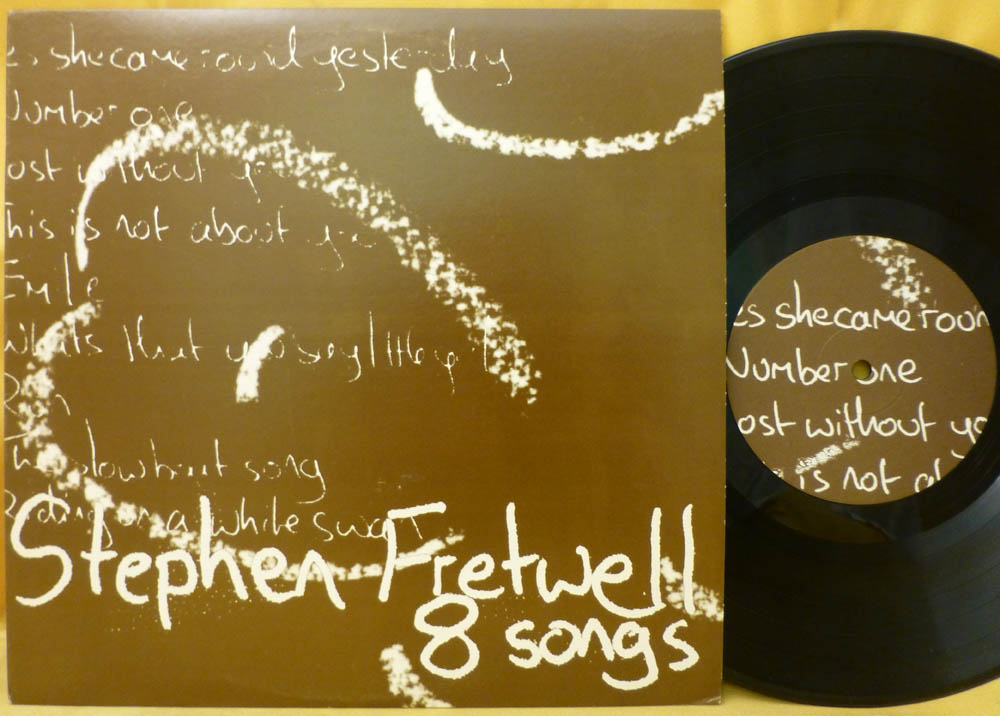 shecame round yesterday
Number one
ost without
This is not about
Emile
whats that you say little
song
on a white swan
Stephen Fretwell
8 songs
es shecame roun
Number one
ost without yo
is not